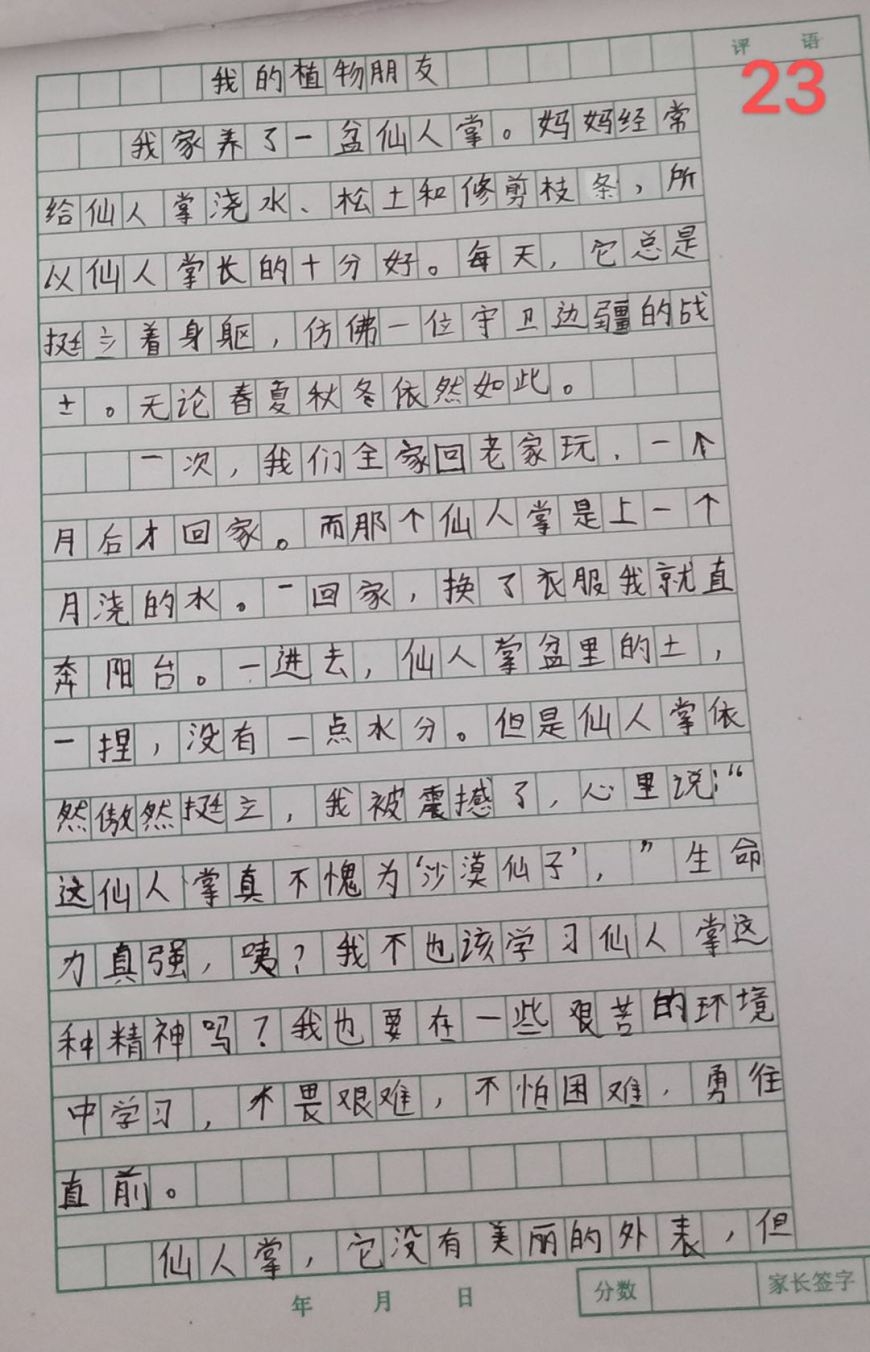 评 语
23
我的植物朋友
我家养了一盆仙人掌。妈妈经常
给仙人掌浇水、松土和修剪枝条，所
以仙人掌长的十分好。每天，它总是
挺立着身躯，仿佛一位守卫边疆的战
士。无论春夏秋冬依然如此。
一次，我们全家回老家玩，一个
月后才回家。而那个仙人掌是上一个
月浇的水。一回家，换了衣服我就直
奔阳台。一进去，仙人掌盆里的土，
一捏，没有一点水分。但是仙人掌依
然傲然挺立，我被震撼了，心里说：“
这仙人掌真不愧为‘沙漠仙子’，”生命
力真强，咦？我不也该学习仙人掌这
种精神吗？我也要在一些艰苦的环境
中学习，不畏艰难，不怕困难，勇往
直前。
仙人掌，它没有美丽的外表，但
年 月 日
分数
家长签字